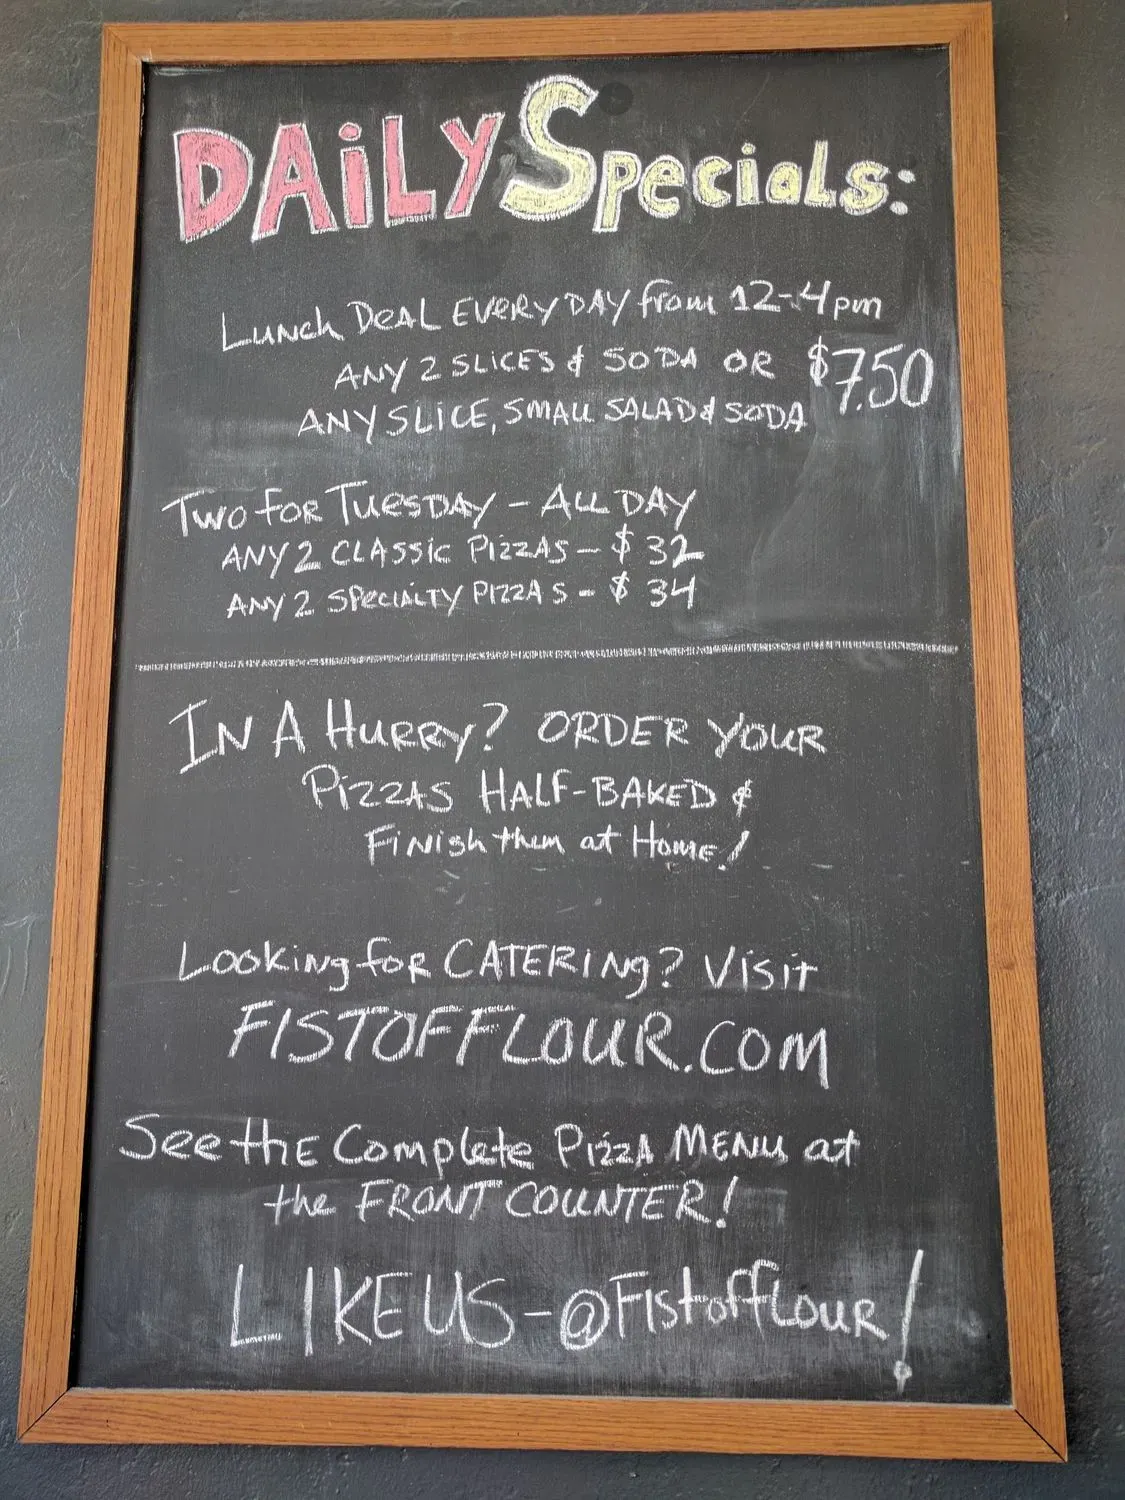 DAiLY Specials:
Lunch Deal Everyday from 12-4pm
ANY 2 SLICES & SODA OR $7.50
ANY SLICE, SMALL SALAD & SODA
Two for Tuesday - All Day
ANY 2 CLASSIC PIZZAS - $32
ANY 2 SPECIALTY PIZZAS - $34
In A Hurry? ORDER YOUR
Pizzas HALF-BAKED &
Finish them at Home!
Looking for CATERING? Visit
FISTOFFLOUR.COM
See the Complete Pizza MENU at
the FRONT COUNTER!
LIKE US - @Fistofflour!